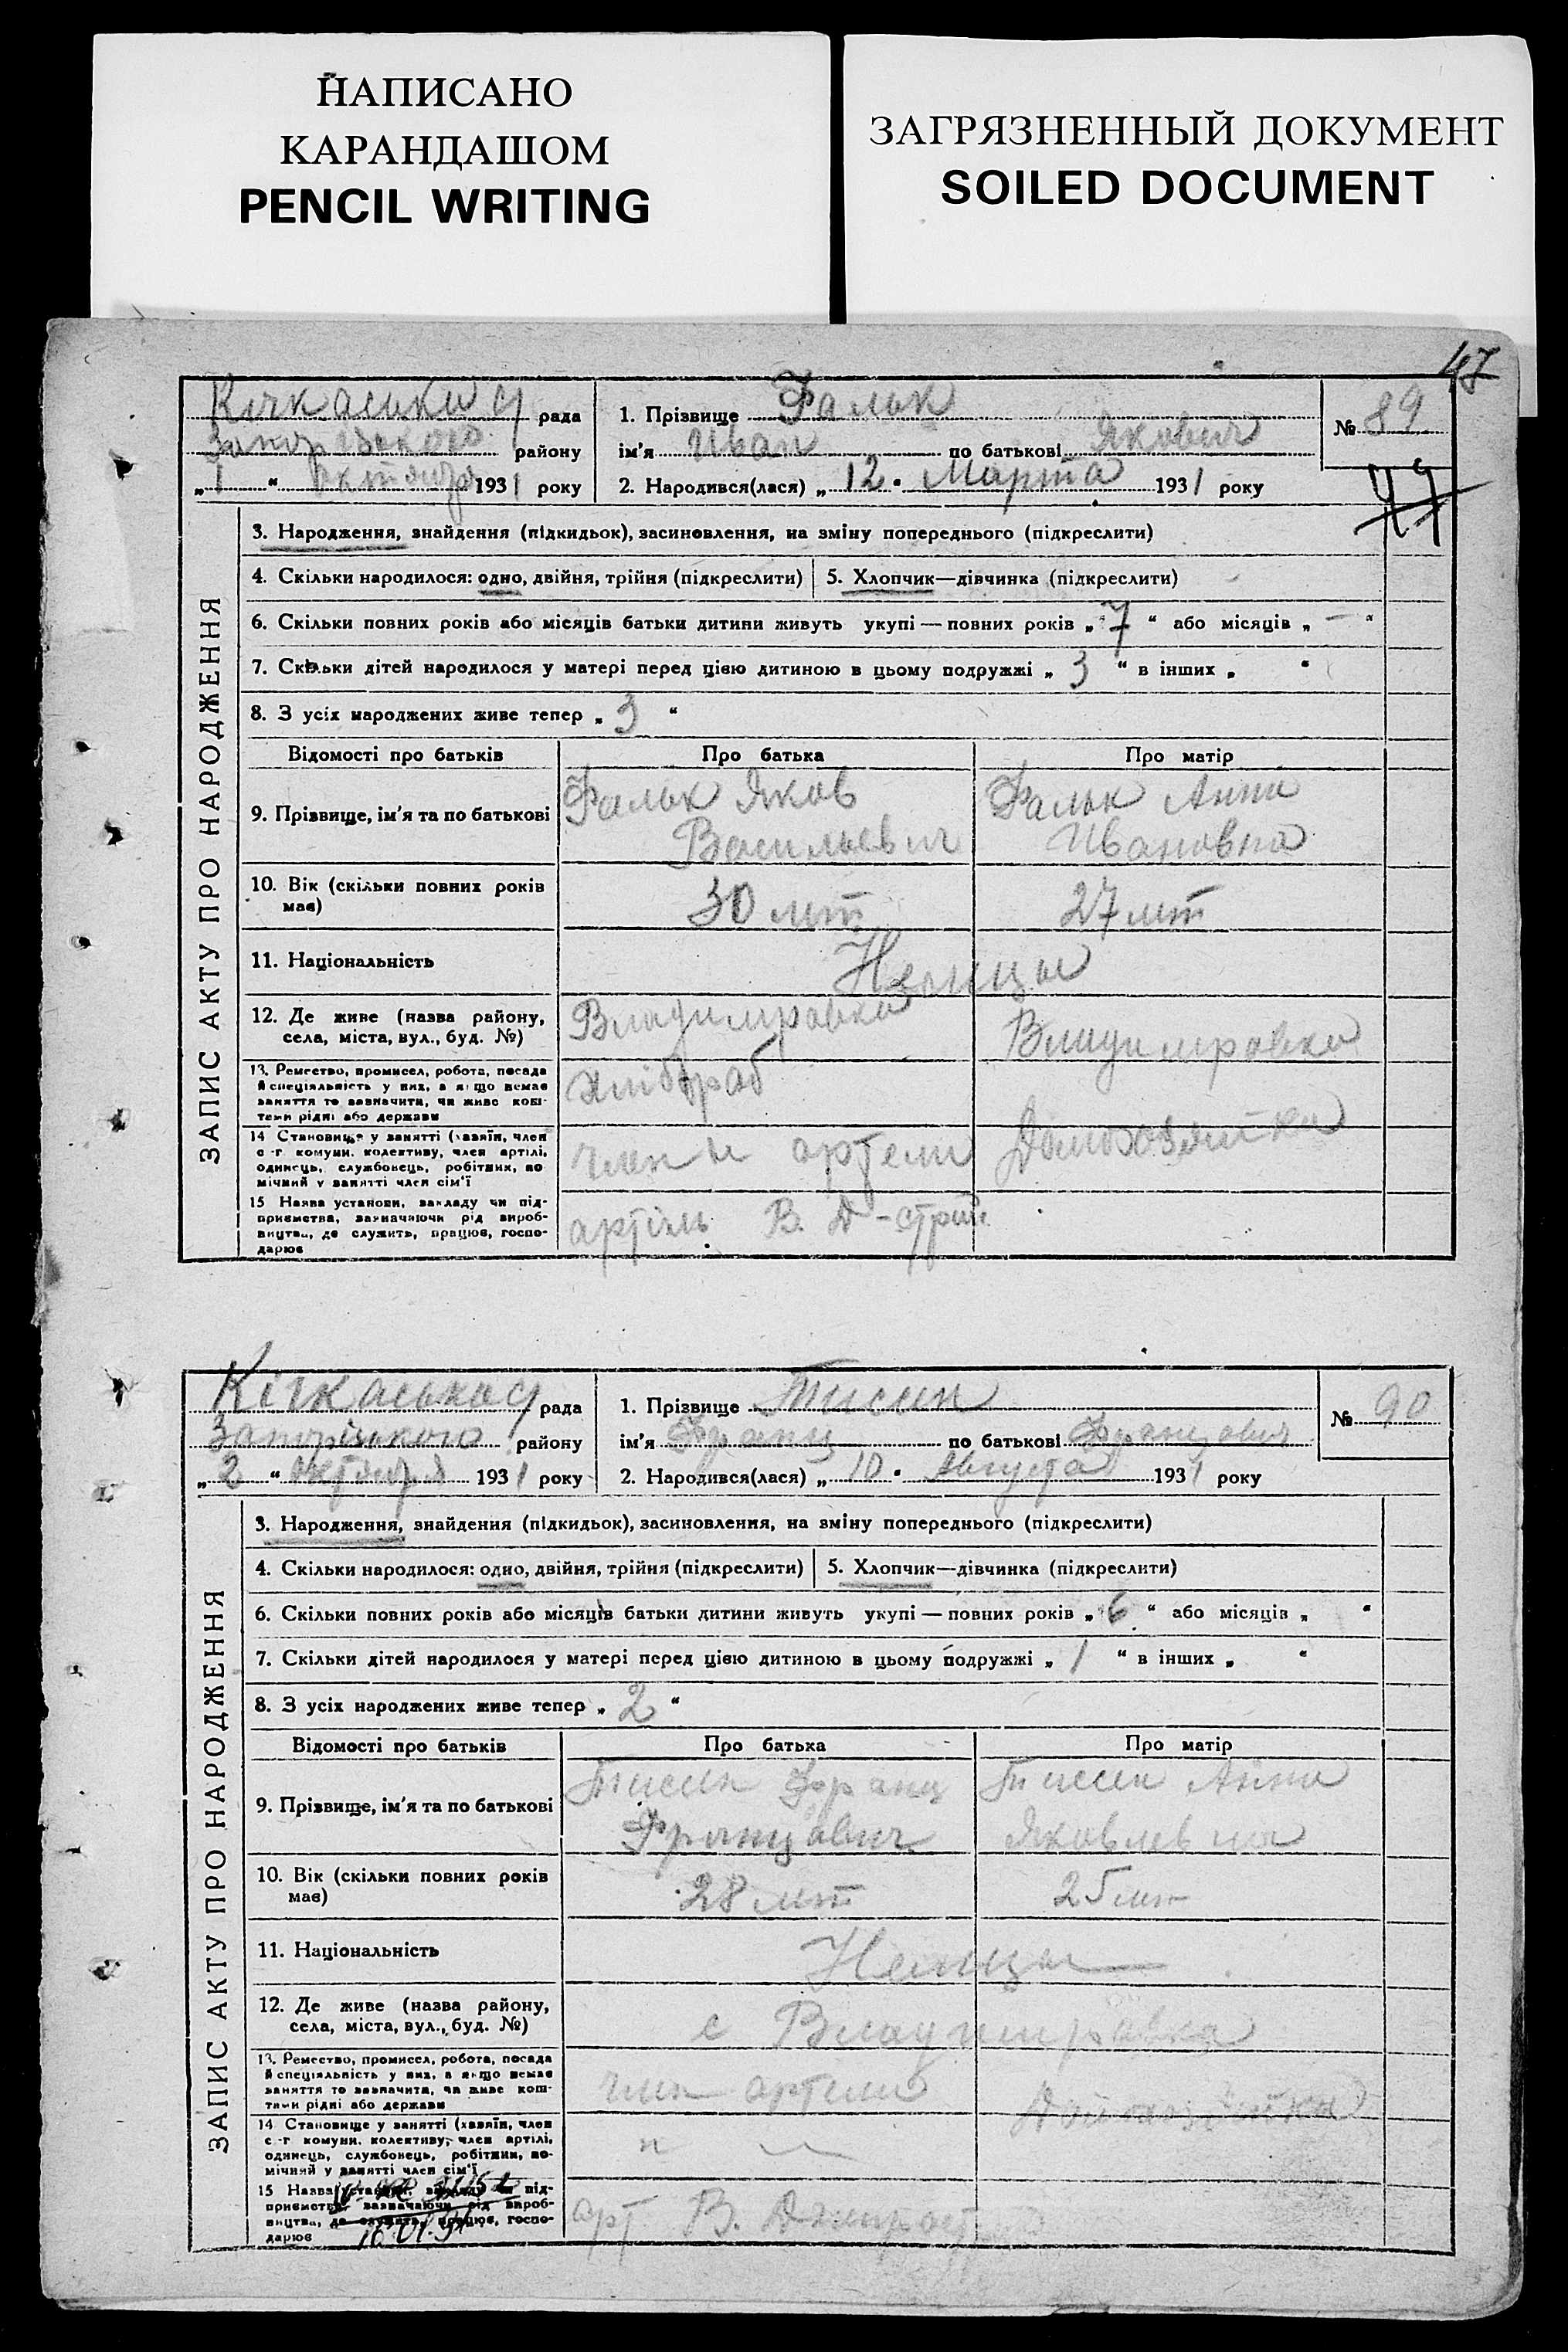 НАПИСАНО
КАРАНДАШОМ
PENCIL WRITING
ЗАГРЯЗНЕННЫЙ ДОКУМЕНТ
SOILED DOCUMENT
47
Кічкаський рада
Запорізького району
„ 1 “ октября 1931 року
1. Прізвище Фальк
ім'я Иван по батькові Якович
2. Народився(лася) „ 12 “ Марта 1931 року
№ 89
ЗАПИС АКТУ ПРО НАРОДЖЕННЯ
3. Народження, знайдення (підкидьок), засиновлення, на зміну попереднього (підкреслити)
4. Скільки народилося: одно, двійня, трійня (підкреслити) 5. Хлопчик—дівчинка (підкреслити)
6. Скільки повних років або місяців батьки дитини живуть укупі — повних років „ 7 “ або місяців „ — “
7. Скільки дітей народилося у матері перед цією дитиною в цьому подружжі „ 3 “ в інших „ “
8. З усіх народжених живе тепер „ 3 “
Відомості про батьків Про батька Про матір
9. Прізвище, ім'я та по батькові
Фальк Яков
Васильевич
Фальк Анна
Ивановна
10. Вік (скільки повних років
має)
30 лет
27 лет
11. Національність
Немцы
12. Де живе (назва району,
села, міста, вул., буд. №)
Владимировка
Владимировка
13. Ремество, промисел, робота, посада
й спеціяльність у них, а якщо немає
заняття то зазначити, чи живе кош-
тами рідні або держави
хлібораб
14 Становище у занятті (хазяїн, член
с.-г комуни, колективу, член артілі,
одинець, службовець, робітник, по-
мічний у занятті член сім'ї
член артели
Домохозяйка
15 Назва установи, закладу чи під-
приємства, зазначаючи рід вироб-
ництва, де служить, працює, госпо-
дарює
артіль В. Д-строй
Кічкаської рада
Запорізького району
„ 2 “ октября 1931 року
1. Прізвище Тиссен
ім'я Франц по батькові Францович
2. Народився(лася) „ 10 “ Августа 1931 року
№ 90
ЗАПИС АКТУ ПРО НАРОДЖЕННЯ
3. Народження, знайдення (підкидьок), засиновлення, на зміну попереднього (підкреслити)
4. Скільки народилося: одно, двійня, трійня (підкреслити) 5. Хлопчик—дівчинка (підкреслити)
6. Скільки повних років або місяців батьки дитини живуть укупі — повних років „ 6 “ або місяців „ “
7. Скільки дітей народилося у матері перед цією дитиною в цьому подружжі „ 1 “ в інших „ “
8. З усіх народжених живе тепер „ 2 “
Відомості про батьків Про батька Про матір
9. Прізвище, ім'я та по батькові
Тиссен Франц
Францович
Тиссен Анна
Яковлевна
10. Вік (скільки повних років
має)
28 лет
25 лет
11. Національність
Немцы
12. Де живе (назва району,
села, міста, вул., буд. №)
с Владимировка
13. Ремество, промисел, робота, посада
й спеціяльність у них, а якщо немає
заняття то зазначити, чи живе кош-
тами рідні або держави
член артели
Домохозяйка
14 Становище у занятті (хазяїн, член
с.-г комуни, колективу, член артілі,
одинець, службовець, робітник, по-
мічний у занятті член сім'ї
15 Назва установи, закладу чи під-
приємства, зазначаючи рід вироб-
ництва, де служить, працює, госпо-
дарює
арт В.